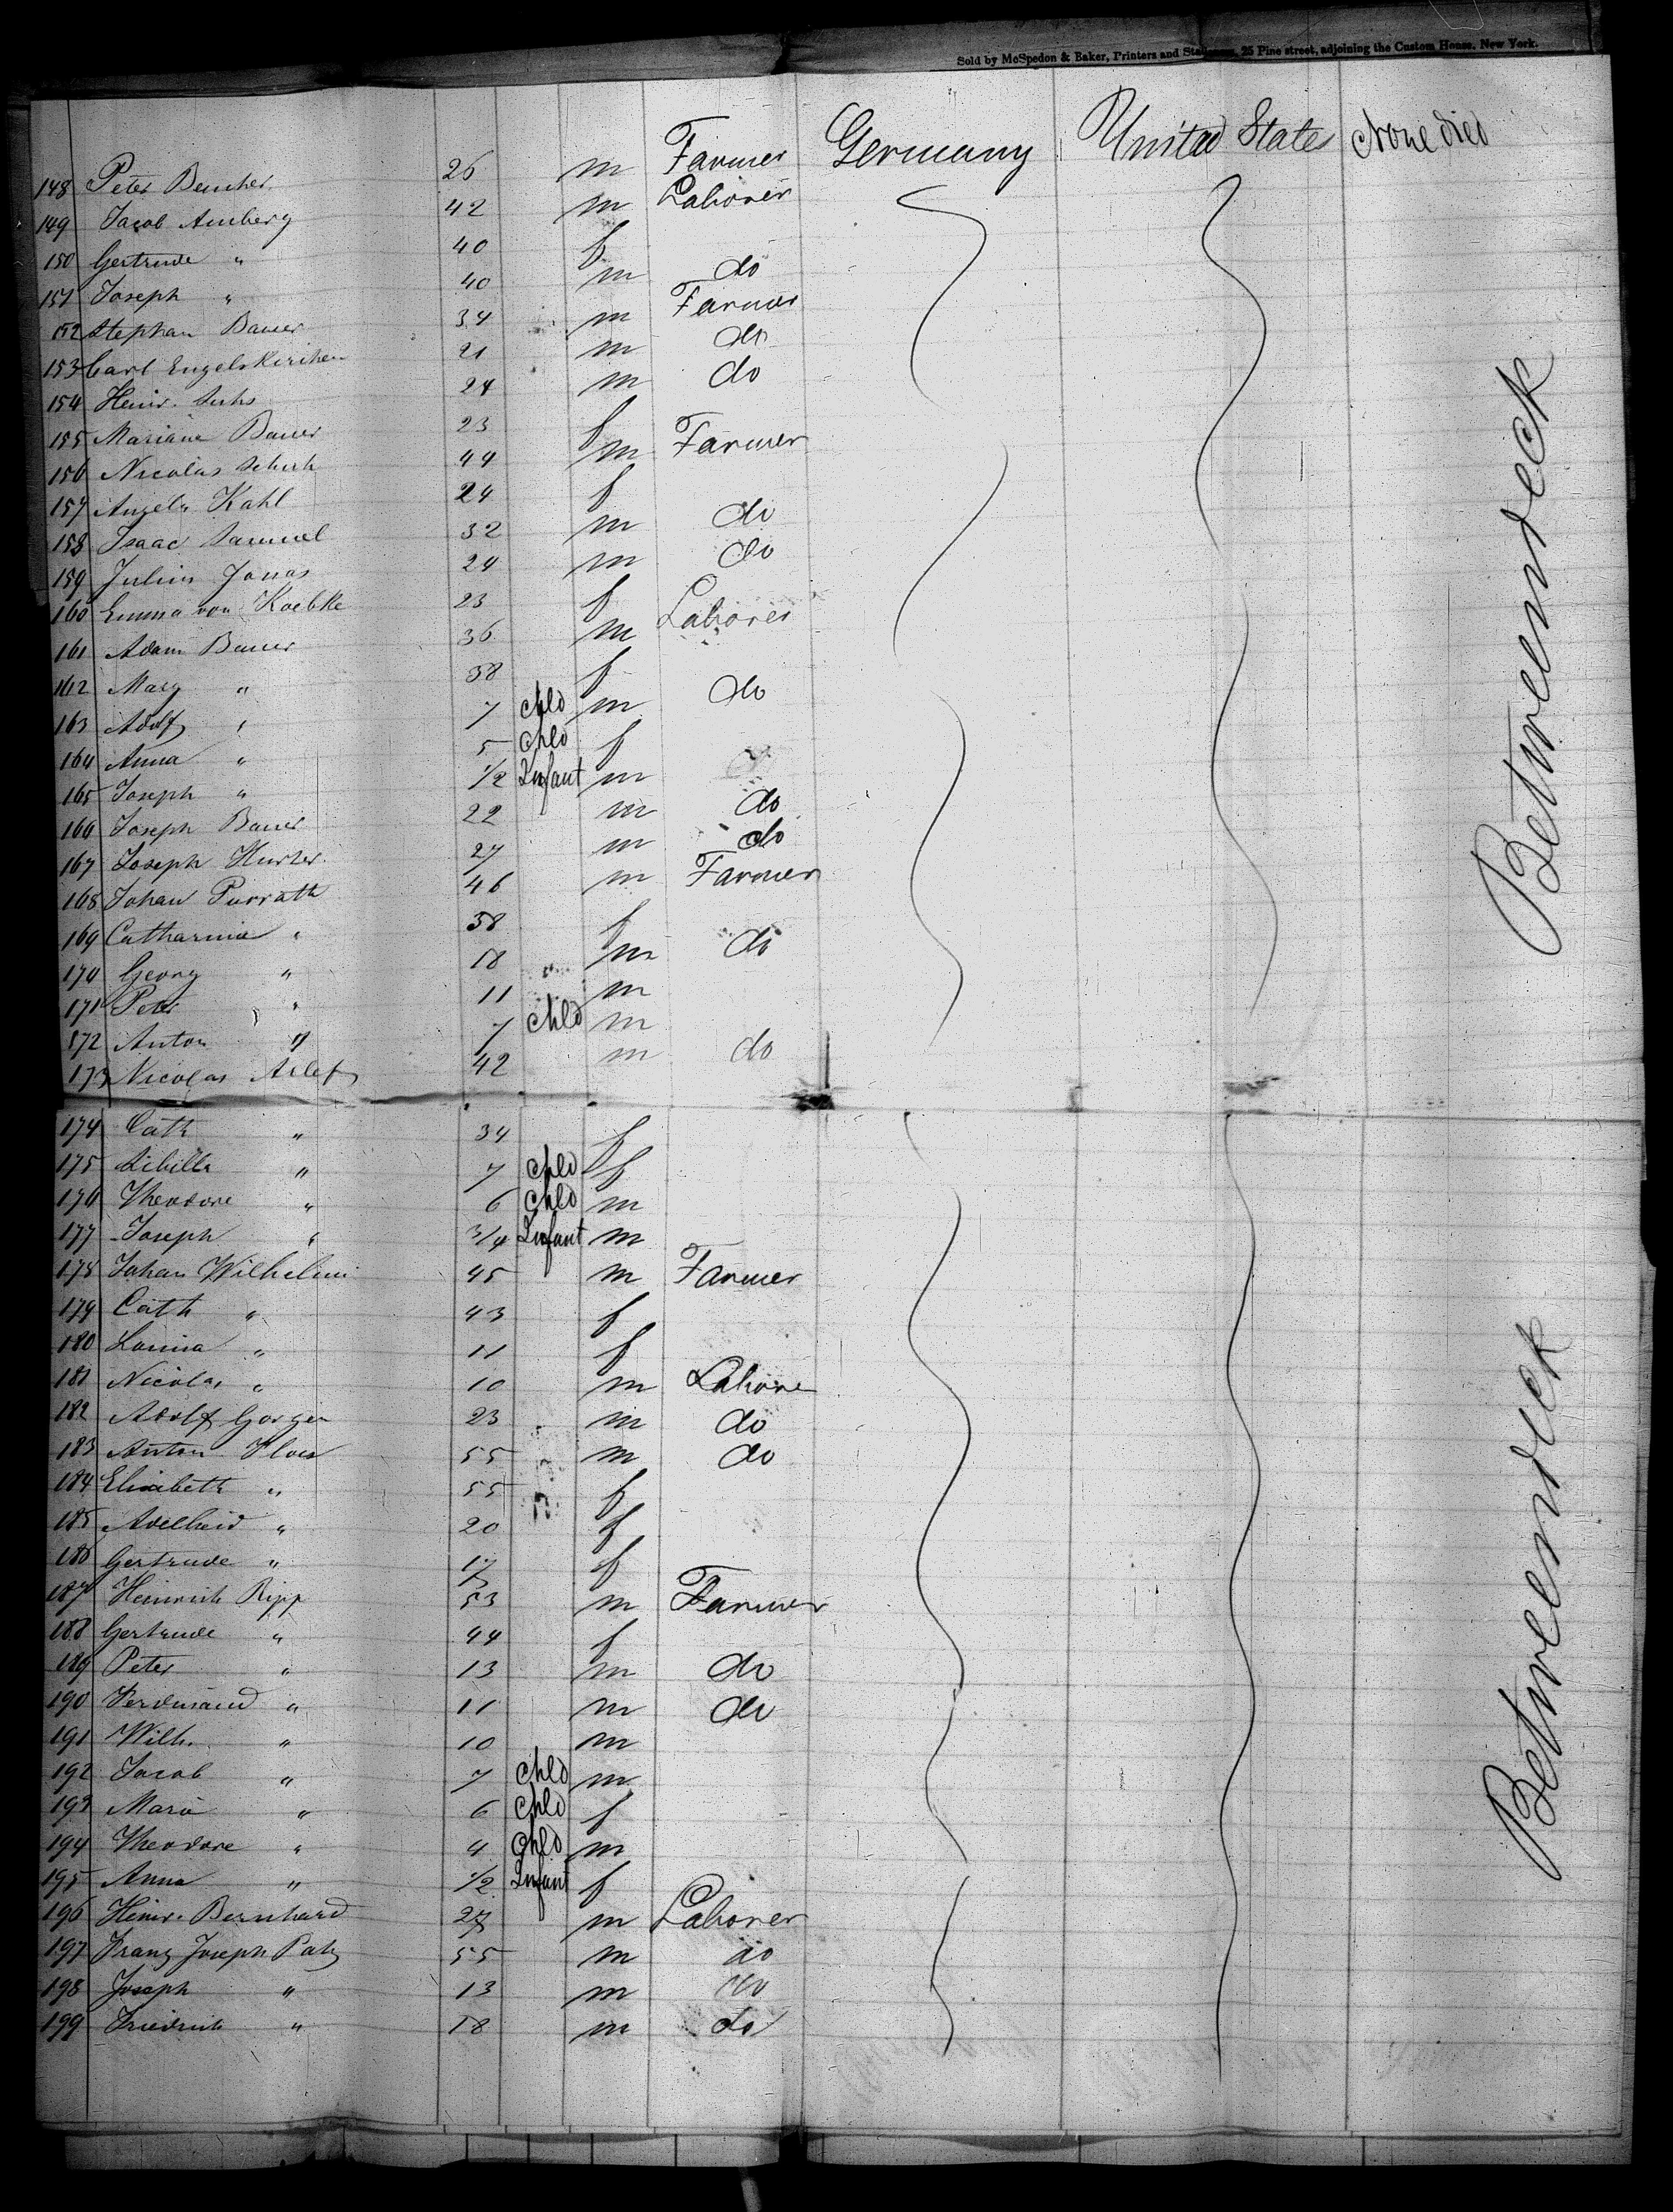 Sold by McSpedon & Baker, Printers and Stationers, 25 Pine street, adjoining the Custom House, New York.
148 Peter Bencher 26 m Farmer Germany United States None died
149 Jacob Amberg 42 m Laborer
150 Gertrude " 40 f
151 Joseph " 40 m do
152 Stephan Bauer 34 m Farmer
153 Carl Engelskirchen 21 m do
154 Heinr. 24 m do
155 Mariane Bauer 23 f
156 Nicolas Schuh 44 m Farmer
157 Angela Kahl 24 f
158 Isaac Samuel 32 m do
159 Julius Jonas 24 m do
160 Emma von Koebke 23 f
161 Adam Bauer 36 m Laborer
162 Mary " 38 f
163 Adolf " 7 Chld m do
164 Anna " 5 Chld f
165 Joseph " 1/2 Infant m
166 Joseph Bauer 22 m do
167 Joseph Hurter 27 m do
168 Johan Purrath 46 m Farmer
169 Catharina " 38 f
170 Georg " 18 m do
171 Peter " 11 m
172 Anton " 7 Chld m
173 Nicolas 42 m do
174 Cath " 34 f
175 Sibilla " 7 Chld f
176 Theodore " 6 Chld m
177 Joseph " 3/4 Infant m
178 Johan Wilhelmi 45 m Farmer
179 Cath " 43 f
180 Louisa " 11 f
181 Nicolas " 10 m Laborer
182 Adolf Gorgen 23 m do
183 Anton 55 m do
184 Elisabeth " 55 f
185 Adelheid " 20 f
186 Gertrude " 17 f
187 Heinrich Ripp 53 m Farmer
188 Gertrude " 44 f
189 Peter " 13 m do
190 Ferdinand " 11 m do
191 Wilh. " 10 m
192 Jacob " 7 Chld m
193 Maria " 6 Chld f
194 Theodore " 4 Chld m
195 Anna " 1/2 Infant f
196 Heinr. Bernhard 27 m Laborer
197 Franz Joseph Patz 55 m do
198 Joseph " 13 m do
199 Friedrich " 18 m do
Betweendeck
Betweendeck